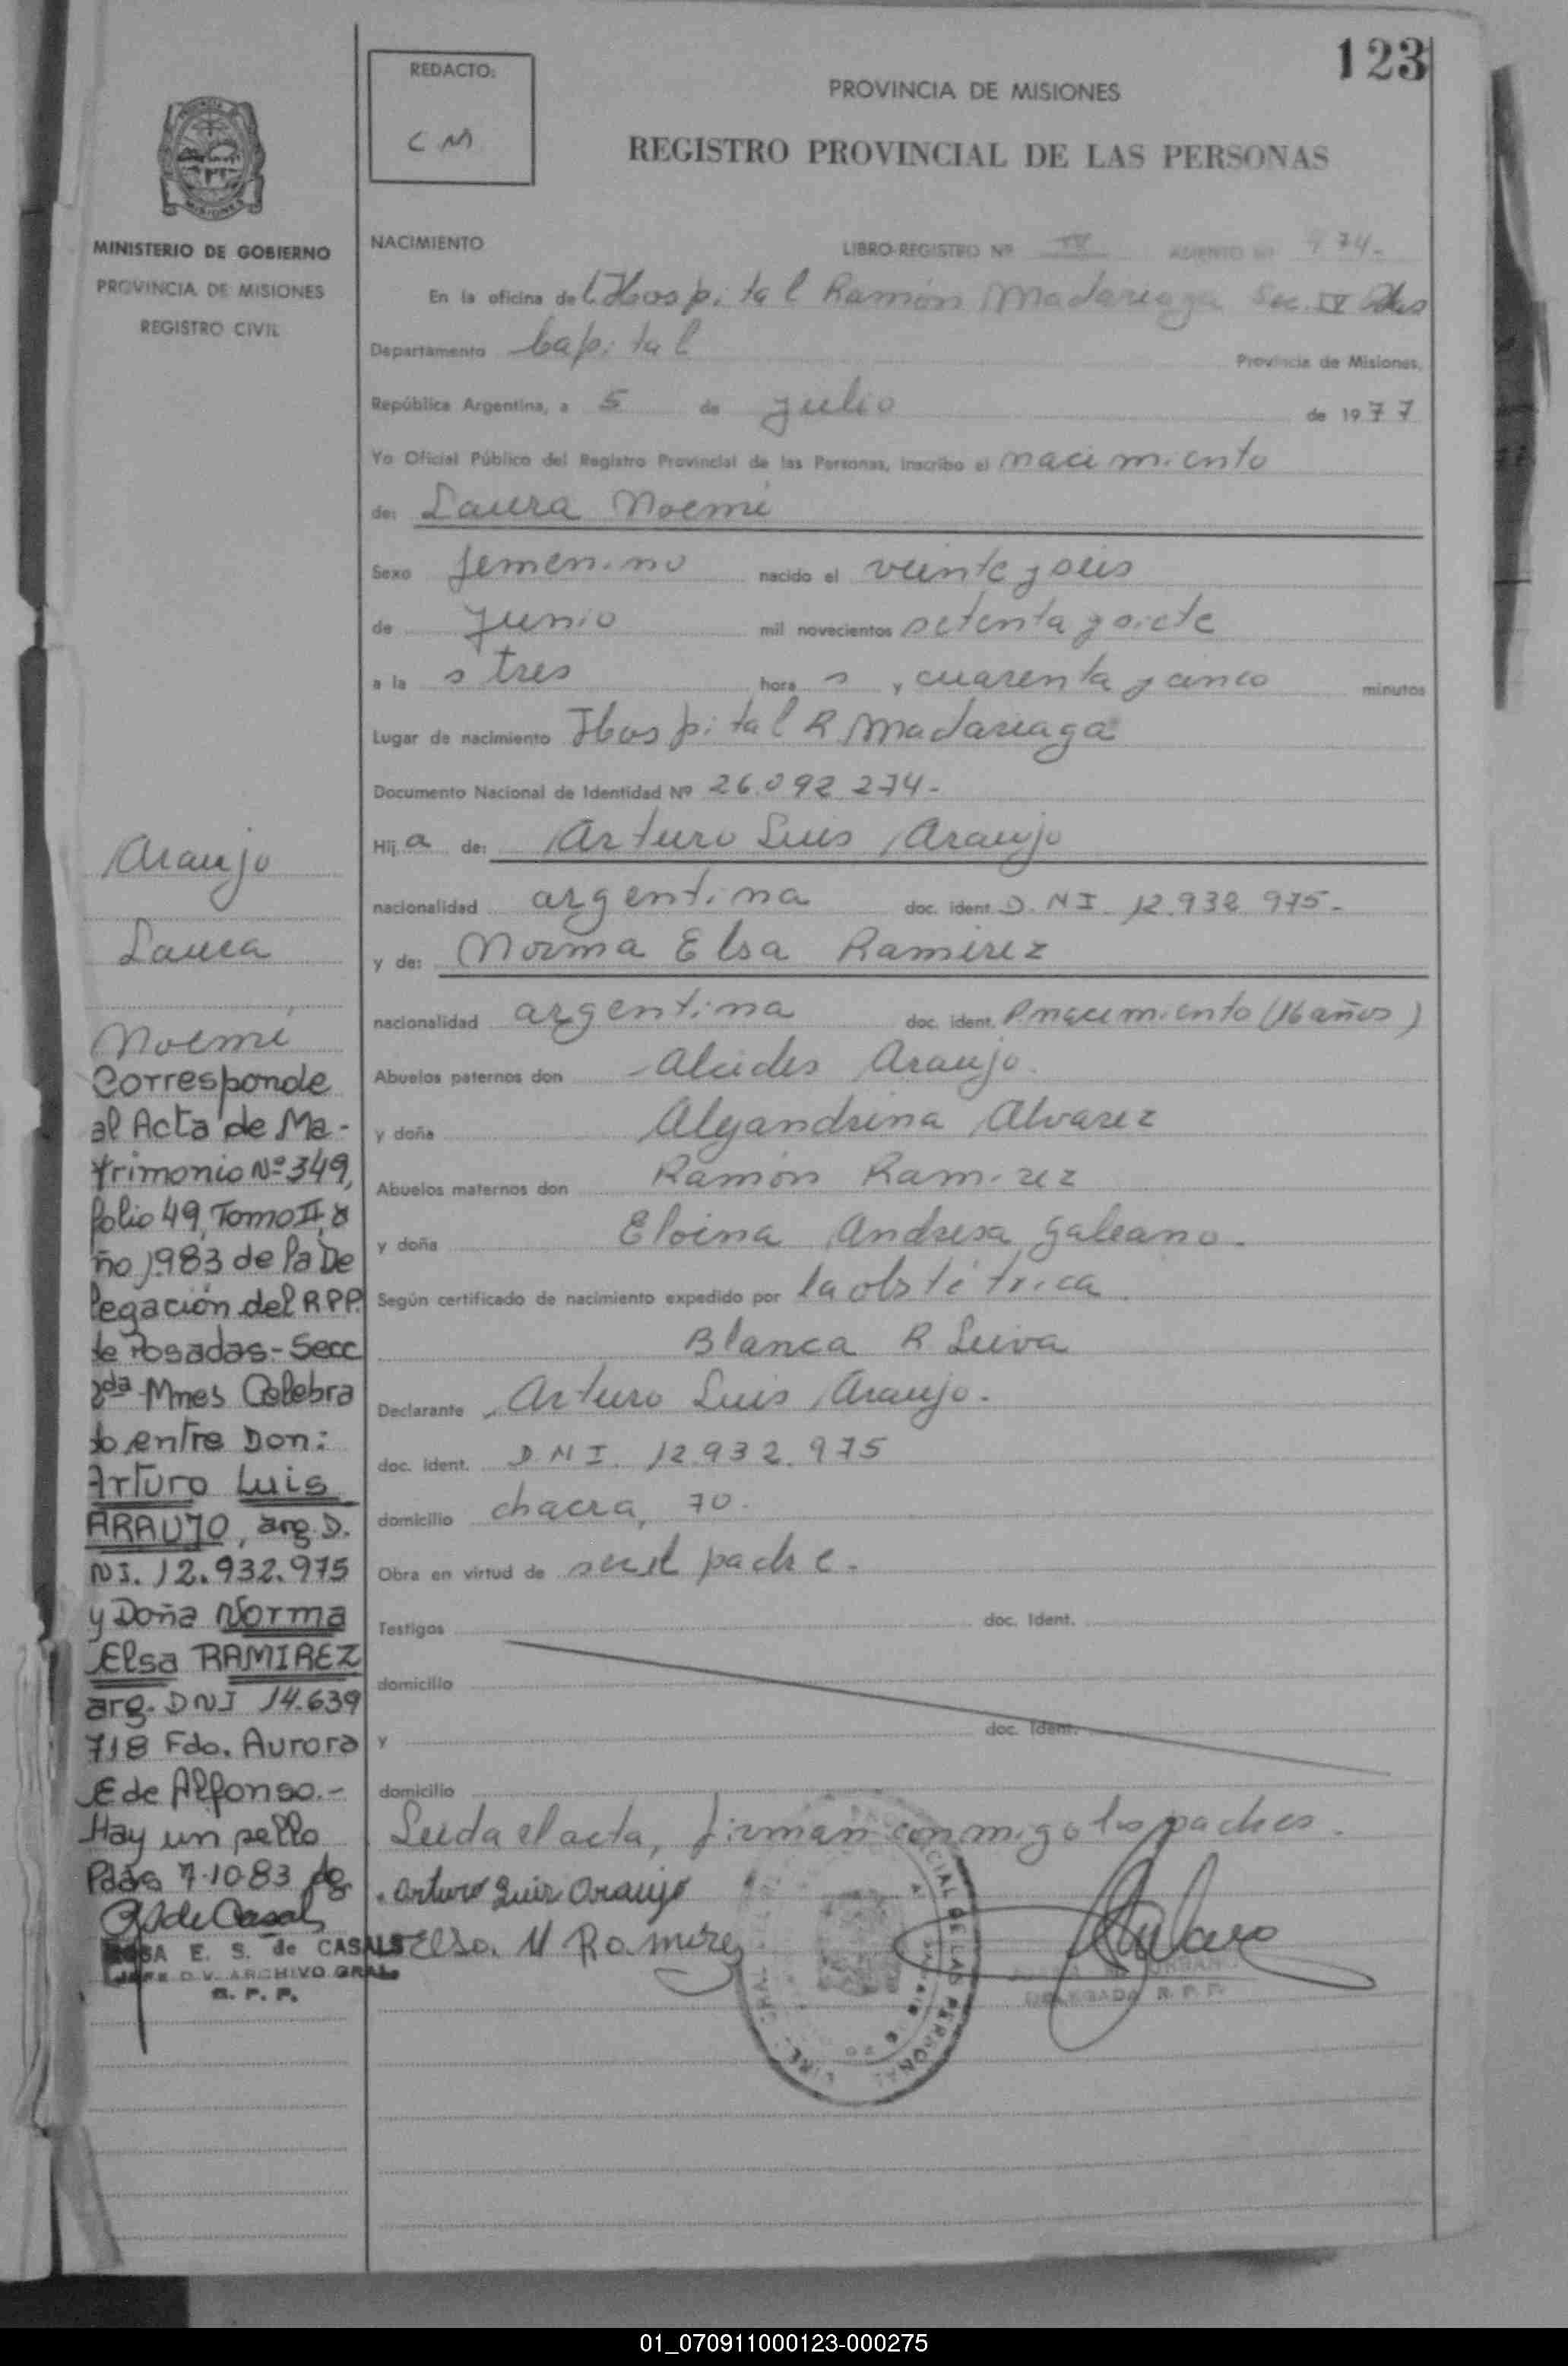 123
REDACTO:
C M
PROVINCIA DE MISIONES
REGISTRO PROVINCIAL DE LAS PERSONAS
MISIONES
MINISTERIO DE GOBIERNO
PROVINCIA DE MISIONES
REGISTRO CIVIL
NACIMIENTO LIBRO-REGISTRO Nº IV ASIENTO Nº 974-
En la oficina del Hospital Ramón Madariaga Sec. IV Pdas
Departamento Capital Provincia de Misiones,
República Argentina, a 5 de julio de 1977
Yo Oficial Público del Registro Provincial de las Personas, inscribo el nacimiento
de: Laura Noemí
Sexo femenino nacido el veinte y seis
de Junio mil novecientos setenta y siete
a la s tres hora s y cuarenta y cinco minutos
Lugar de nacimiento Hospital R Madariaga
Documento Nacional de Identidad Nº 26.092.274-
Hij a de: Arturo Luis Araujo
nacionalidad argentina doc. ident. D.N.I. 12.932.975-
y de: Norma Elsa Ramirez
nacionalidad argentina doc. ident. P nacimiento (16 años)
Abuelos paternos don Alcides Araujo
y doña Alejandrina Alvarez
Abuelos maternos don Ramón Ramirez
y doña Eloina Andresa Galeano-
Según certificado de nacimiento expedido por la obstétrica
Blanca R Leiva
Declarante Arturo Luis Araujo-
doc. ident. D.N.I. 12.932.975
domicilio chacra, 70-
Obra en virtud de ser el padre-
Testigos doc. Ident.
domicilio
y doc. Ident.
domicilio
Leida el acta, firman conmigo los padres.
Arturo Luis Araujo
Elsa. N Ramirez
DELEGADA R. P. P.
Araujo
Laura
Noemí
Corresponde
al Acta de Ma-
trimonio Nº 349,
folio 49, Tomo II, a
ño 1983 de la De
legación del R.P.P.
de Posadas- Secc
2da- Mnes Celebra
do entre Don:
Arturo Luis
ARAUJO, arg. D.
NI. 12.932.975
y Doña Norma
Elsa RAMIREZ
arg. DNI 14.639
718 Fdo. Aurora
E de Alfonso.-
Hay un sello
Pdas 7-10-83
ROSA E. S. de CASALS
JEFE DIV. ARCHIVO GRAL
R. P. P.
01_070911000123-000275